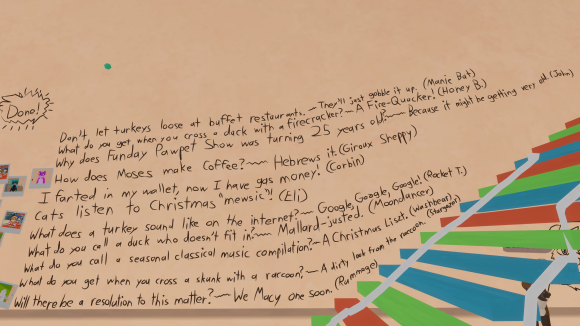 Done!
Don't let turkeys loose at buffet restaurants. — They'll just gobble it up. (Manic Bat)
What do you get when you cross a duck with a firecracker? — A Fire-Quacker! (Honey B.)
Why does Funday Pawpet Show was turning 25 years old? — Because it might be getting very old. (John)
How does Moses make Coffee? — Hebrews it. (Giroux Sheppy)
I farted in my wallet, now I have gas money! (Corbin)
Cats listen to Christmas "mewsic"! (Eli)
What does a turkey sound like on the internet? — Google, Google, Google! (Rocket T.)
What do you call a duck who doesn't fit in? — Mallard-justed. (Moondancer)
What do you call a seasonal classical music compilation? — A Christmas Liszt. (Washbear)
What do you get when you cross a skunk with a raccoon? — A dirty look from the raccoon. (Stargazer)
Will there be a resolution to this matter? — We Macy one soon. (Rummage)